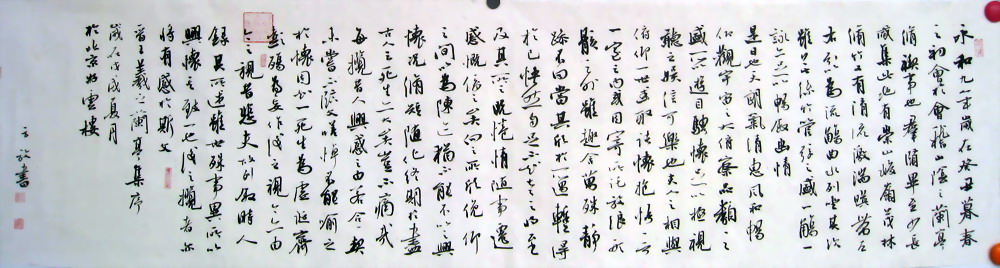 永和九年歲在癸丑暮春
之初會於會稽山陰之蘭亭
脩禊事也羣賢畢至少長
咸集此地有崇山峻嶺茂林
脩竹又有清流激湍暎帶左
右引以為流觴曲水列坐其次
雖無絲竹管弦之盛一觴一
詠亦足以暢敘幽情
是日也天朗氣清惠風和暢
仰觀宇宙之大俯察品類之
盛所以遊目騁懷足以極視
聽之娛信可樂也夫人之相與
俯仰一世或取諸懷抱悟言
一室之內或因寄所託放浪形
骸之外雖趣舍萬殊靜
躁不同當其欣於所遇暫得
於己怏然自足不知老之將至
及其所之既惓情隨事遷
感慨係之矣向之所欣俛仰
之間以為陳迹猶不能不以之興
懷況脩短隨化終期於盡
古人云死生亦大矣豈不痛哉
每攬昔人興感之由若合一契
未嘗不臨文嗟悼不能喻之
於懷固知一死生為虛誕齊
彭殤為妄作後之視今亦由
今之視昔悲夫故列敘時人
錄其所述雖世殊事異所以
興懷其致一也後之攬者亦
將有感於斯文
晉王羲之蘭亭集序
歲在戊戌夏月
於北京好雲樓
書